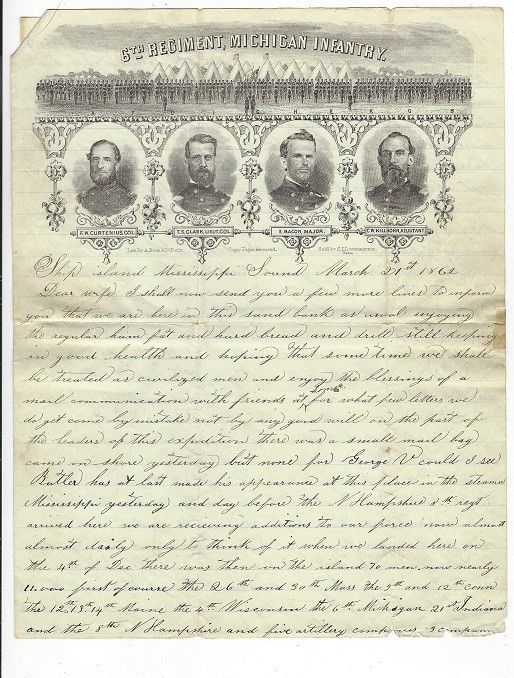 6TH REGIMENT, MICHIGAN INFANTRY.
F.W. CURTENIUS, COL. T.S. CLARK, LIEUT. COL. E. BACON, MAJOR. C.W. KILLBORN, ADJUTANT.
Copy Right Secured. Sold by
Ship island Mississippi Sound March 21st 1862
Dear wife I shall now send you a few more lines to inform
you that we are here in this sand bank as usual enjoying
the regular ham fat and hard bread and drill still keeping
in good health and hoping that some time we shall
be treated as civilized men and enjoy the blessings of a
mail communication with friends at home for what few letters we
do get come by mistake not by any good will on the part of
the leaders of this expedition there was a small mail bag
came on shore yesterday but none for George V could I see
Butler has at last made his appearance at this place in the steamer
Mississippi yesterday and day before the N Hampshire 8th regt
arrived here we are recieving additions to our force now almost
almost daily only to think of it when we landed here on
the 4th of Dec there was then on the island 70 men, now nearly
11.000 first of course the 26th and 30th Mass the 9th and 12th conn
the 12th 13th 14th Maine the 4th Wisconsin the 6th Michigan 21st Indiana
and the 8th N Hampshire and five artillery companies 2 companies